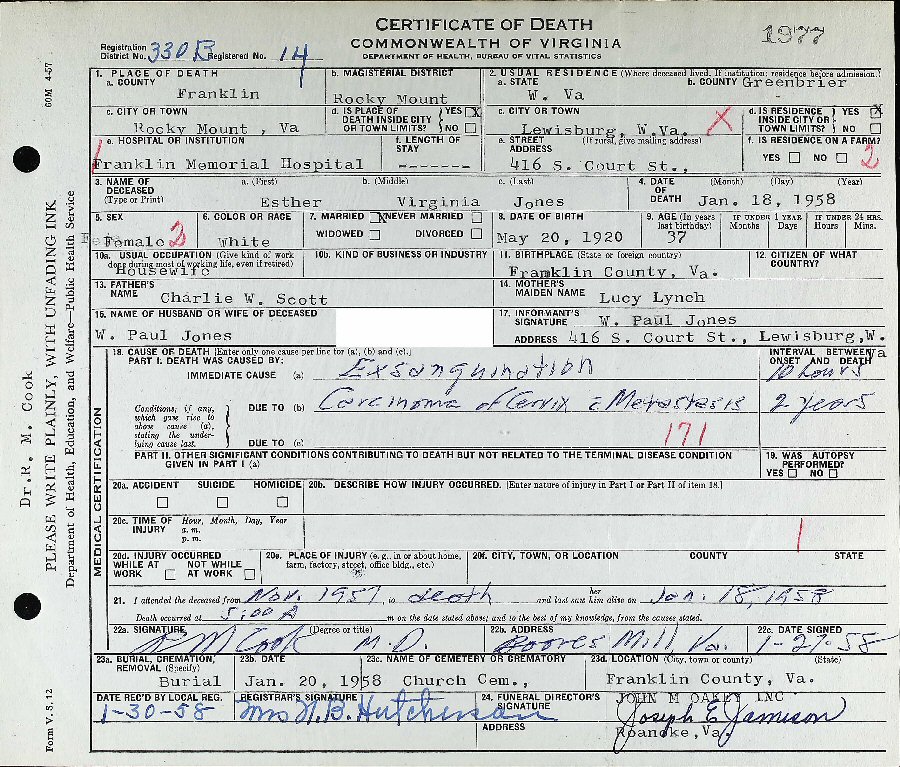 CERTIFICATE OF DEATH
COMMONWEALTH OF VIRGINIA
DEPARTMENT OF HEALTH, BUREAU OF VITAL STATISTICS
1977
Registration District No. 330B Registered No. 14
60M 4-57
1. PLACE OF DEATH
a. COUNTY
Franklin
b. MAGISTERIAL DISTRICT
Rocky Mount
2. USUAL RESIDENCE (Where deceased lived. If institution: residence before admission.)
a. STATE
W. Va
b. COUNTY Greenbrier
c. CITY OR TOWN
Rocky Mount , Va
d. IS PLACE OF DEATH INSIDE CITY OR TOWN LIMITS? YES X NO
c. CITY OR TOWN
Lewisburg, W.Va. X
d. IS RESIDENCE INSIDE CITY OR TOWN LIMITS? YES X NO
e. HOSPITAL OR INSTITUTION
Franklin Memorial Hospital
f. LENGTH OF STAY
-------
e. STREET ADDRESS (If rural, give mailing address)
416 S. Court St.,
f. IS RESIDENCE ON A FARM?
YES NO 2
3. NAME OF DECEASED (Type or Print)
a. (First) b. (Middle) c. (Last)
Esther Virginia Jones
4. DATE OF DEATH (Month) (Day) (Year)
Jan. 18, 1958
5. SEX
Female 2
6. COLOR OR RACE
White
7. MARRIED X NEVER MARRIED
WIDOWED DIVORCED
8. DATE OF BIRTH
May 20, 1920
9. AGE (In years last birthday)
37
IF UNDER 1 YEAR
Months Days
IF UNDER 24 HRS.
Hours Mins.
10a. USUAL OCCUPATION (Give kind of work done during most of working life, even if retired)
Housewife
10b. KIND OF BUSINESS OR INDUSTRY
11. BIRTHPLACE (State or foreign country)
Franklin County, Va.
12. CITIZEN OF WHAT COUNTRY?
13. FATHER'S NAME Charlie W. Scott
14. MOTHER'S MAIDEN NAME Lucy Lynch
15. NAME OF HUSBAND OR WIFE OF DECEASED
W. Paul Jones
17. INFORMANT'S SIGNATURE W. Paul Jones
ADDRESS 416 S. Court St., Lewisburg,W.Va
MEDICAL CERTIFICATION
18. CAUSE OF DEATH [Enter only one cause per line for (a), (b) and (c).]
PART I. DEATH WAS CAUSED BY:
IMMEDIATE CAUSE (a) Exsanguination
INTERVAL BETWEEN ONSET AND DEATH
10 hours
Conditions, if any, which gave rise to above cause (a), stating the underlying cause last.
DUE TO (b) Carcinoma of Cervix c̄ Metastasis 2 years
171
DUE TO (c)
PART II. OTHER SIGNIFICANT CONDITIONS CONTRIBUTING TO DEATH BUT NOT RELATED TO THE TERMINAL DISEASE CONDITION GIVEN IN PART I (a)
19. WAS AUTOPSY PERFORMED?
YES NO
20a. ACCIDENT SUICIDE HOMICIDE
20b. DESCRIBE HOW INJURY OCCURRED. (Enter nature of injury in Part I or Part II of item 18.)
20c. TIME OF INJURY Hour, Month, Day, Year
a. m.
p. m.
20d. INJURY OCCURRED
WHILE AT WORK NOT WHILE AT WORK
20e. PLACE OF INJURY (e. g., in or about home, farm, factory, street, office bldg., etc.)
20f. CITY, TOWN, OR LOCATION COUNTY STATE
21. I attended the deceased from Nov. 1957 to death and last saw her him alive on Jan. 18, 1958
Death occurred at 5:00 A m on the date stated above; and to the best of my knowledge, from the causes stated.
22a. SIGNATURE (Degree or title)
R M Cook M.D.
22b. ADDRESS
Boones Mill, Va.
22c. DATE SIGNED
1-27-58
23a. BURIAL, CREMATION, REMOVAL (Specify)
Burial
23b. DATE
Jan. 20, 1958
23c. NAME OF CEMETERY OR CREMATORY
Church Cem.,
23d. LOCATION (City, town or county) (State)
Franklin County, Va.
DATE REC'D BY LOCAL REG.
1-30-58
REGISTRAR'S SIGNATURE
Mrs N.B. Hutcherson
24. FUNERAL DIRECTOR'S SIGNATURE
JOHN M OAKEY INC
Joseph E Jamison
ADDRESS
Roanoke,Va.
Dr.R. M. Cook
PLEASE WRITE PLAINLY, WITH UNFADING INK
Department of Health, Education, and Welfare—Public Health Service
Form V. S. 12